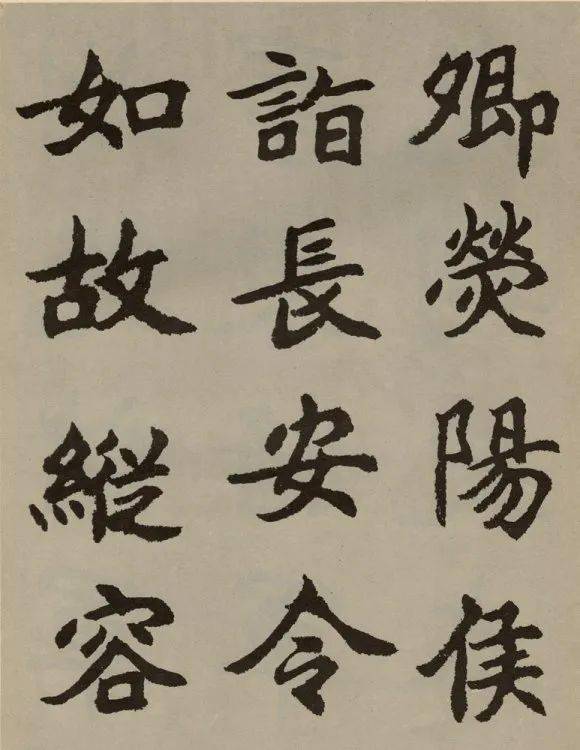 卿熒陽侯
詣長安令
如故縱容